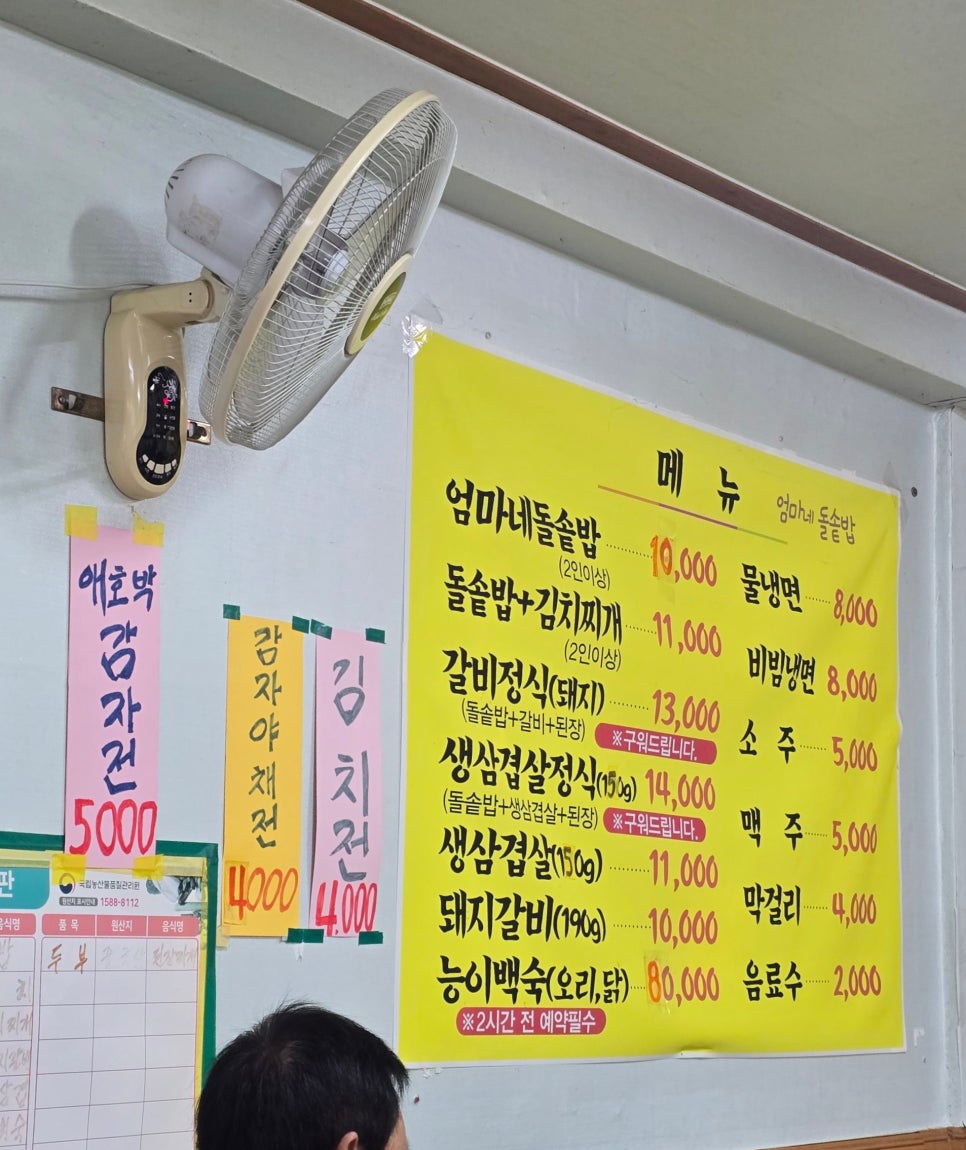 메 뉴
엄마네 돌솥밥
엄마네돌솥밥 10,000
(2인이상)
돌솥밥+김치찌개 11,000
(2인이상)
갈비정식(돼지) 13,000
(돌솥밥+갈비+된장) ※구워드립니다.
생삼겹살정식(150g) 14,000
(돌솥밥+생삼겹살+된장) ※구워드립니다.
생삼겹살(150g) 11,000
돼지갈비(190g) 10,000
능이백숙(오리,닭) 80,000
※2시간 전 예약필수
물냉면 8,000
비빔냉면 8,000
소 주 5,000
맥 주 5,000
막걸리 4,000
음료수 2,000
애호박
감자전
5000
감자야채전
4000
김치전
4.000
판
국립농산물품질관리원
원산지 표시안내 1588-8112
음식명 품 목 원산지 음식명
두 부